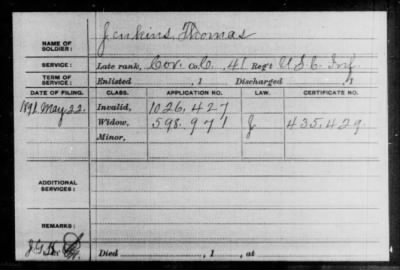 NAME OF SOLDIER: Jenkins, Thomas
SERVICE: Late rank, Cor. Co. C, 41 Reg't U.S.C. Inf.
TERM OF SERVICE: Enlisted , 1 Discharged , 1
DATE OF FILING. CLASS. APPLICATION NO. LAW. CERTIFICATE NO.
1891 May 22. Invalid, 1026.427
Widow, 598.971 J 435.429
Minor,
ADDITIONAL SERVICES:
REMARKS:
Died , 1 , at